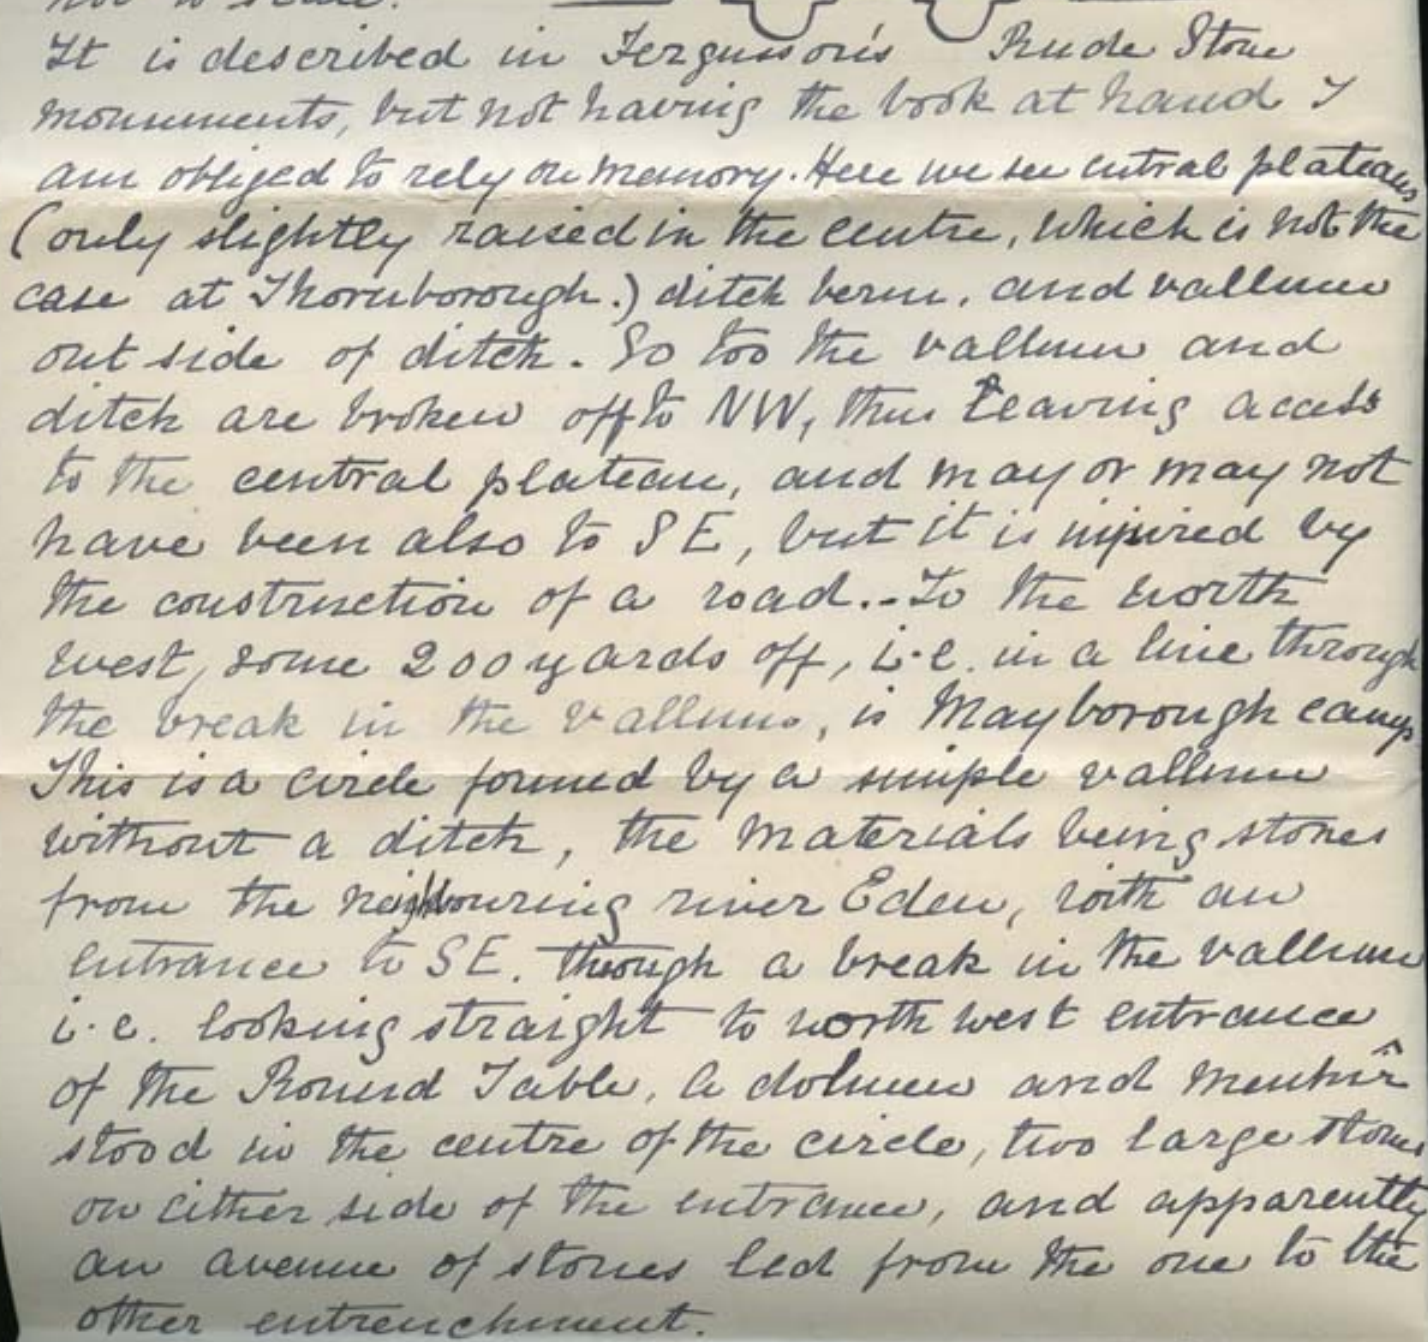 not to scale.
It is described in Fergusson's Rude Stone
monuments, but not having the book at hand I
am obliged to rely on memory. Here we see cntral plateau
(only slightly raised in the centre, which is not the
case at Thornborough.) ditch berm, and vallum
out side of ditch. So too the vallum and
ditch are broken off to NW, thus leaving access
to the central plateau, and may or may not
have been also to SE, but it is injured by
the construction of a road.- To the north
west, some 200 yards off, i.e. in a line through
the break in the vallum, is Mayborough camp
This is a circle formed by a simple vallum
without a ditch, the materials being stones
from the neighbouring river Eden, with an
entrance to SE. through a break in the vallum
i.e. looking straight to north west entrance
of the Round Table, a dolmen and menhir
stood in the centre of the circle, two large stones
on either side of the entrance, and apparently
an avenue of stones led from the one to the
other entrenchment.